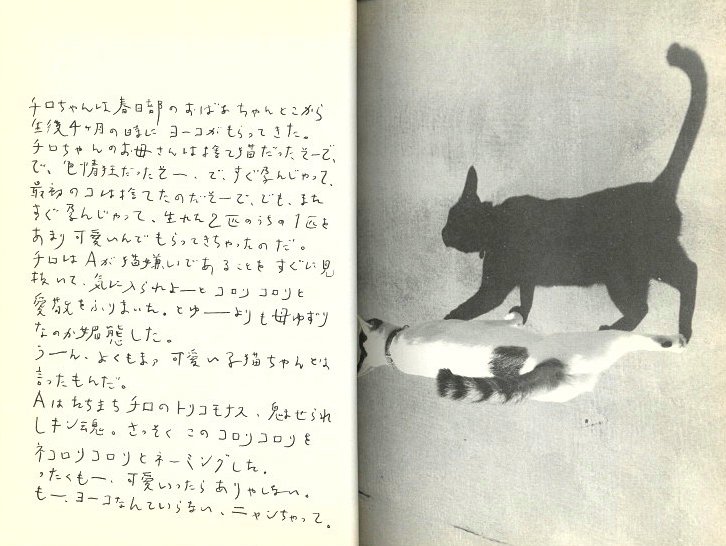 チロちゃんは春日部のおばあちゃんとこから
生後4ヶ月の時に ヨーコがもらってきた。
チロちゃんのお母さんは捨て猫だったそーで、
で、色情狂だったそー、で、すぐ孕んじゃって、
最初のコは捨てたのだそーで、でも、また
すぐ孕んじゃって、生れた2匹のうちの1匹を
あまり可愛いんでもらってきちゃったのだ。
チロはAが猫嫌いであることをすぐに見
抜いて、気に入られよーとコロリコロリと
愛敬をふりまいた。とゆーよりも母ゆずり
なのか媚態した。
うーん、よくもまァ可愛い子猫ちゃんとは
言ったもんだ。
Aはたちまちチロのトリコモナス、魅せられ
しキン魂。さっそくこのコロリコロリを
ネコロリコロリとネーミングした。
ったくもー、可愛いったらありゃしない。
もー、ヨーコなんていらない、ニャンちゃって。